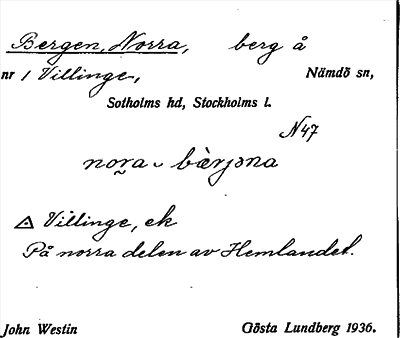 Bergen, Norra, berg å
nr 1 Villinge, Nämdö sn,
Sotholms hd, Stockholms l.
N47
nora ‿ bὰrjəna
△ Villinge, ek
På norra delen av Hemlandet.
John Westin Gösta Lundberg 1936.